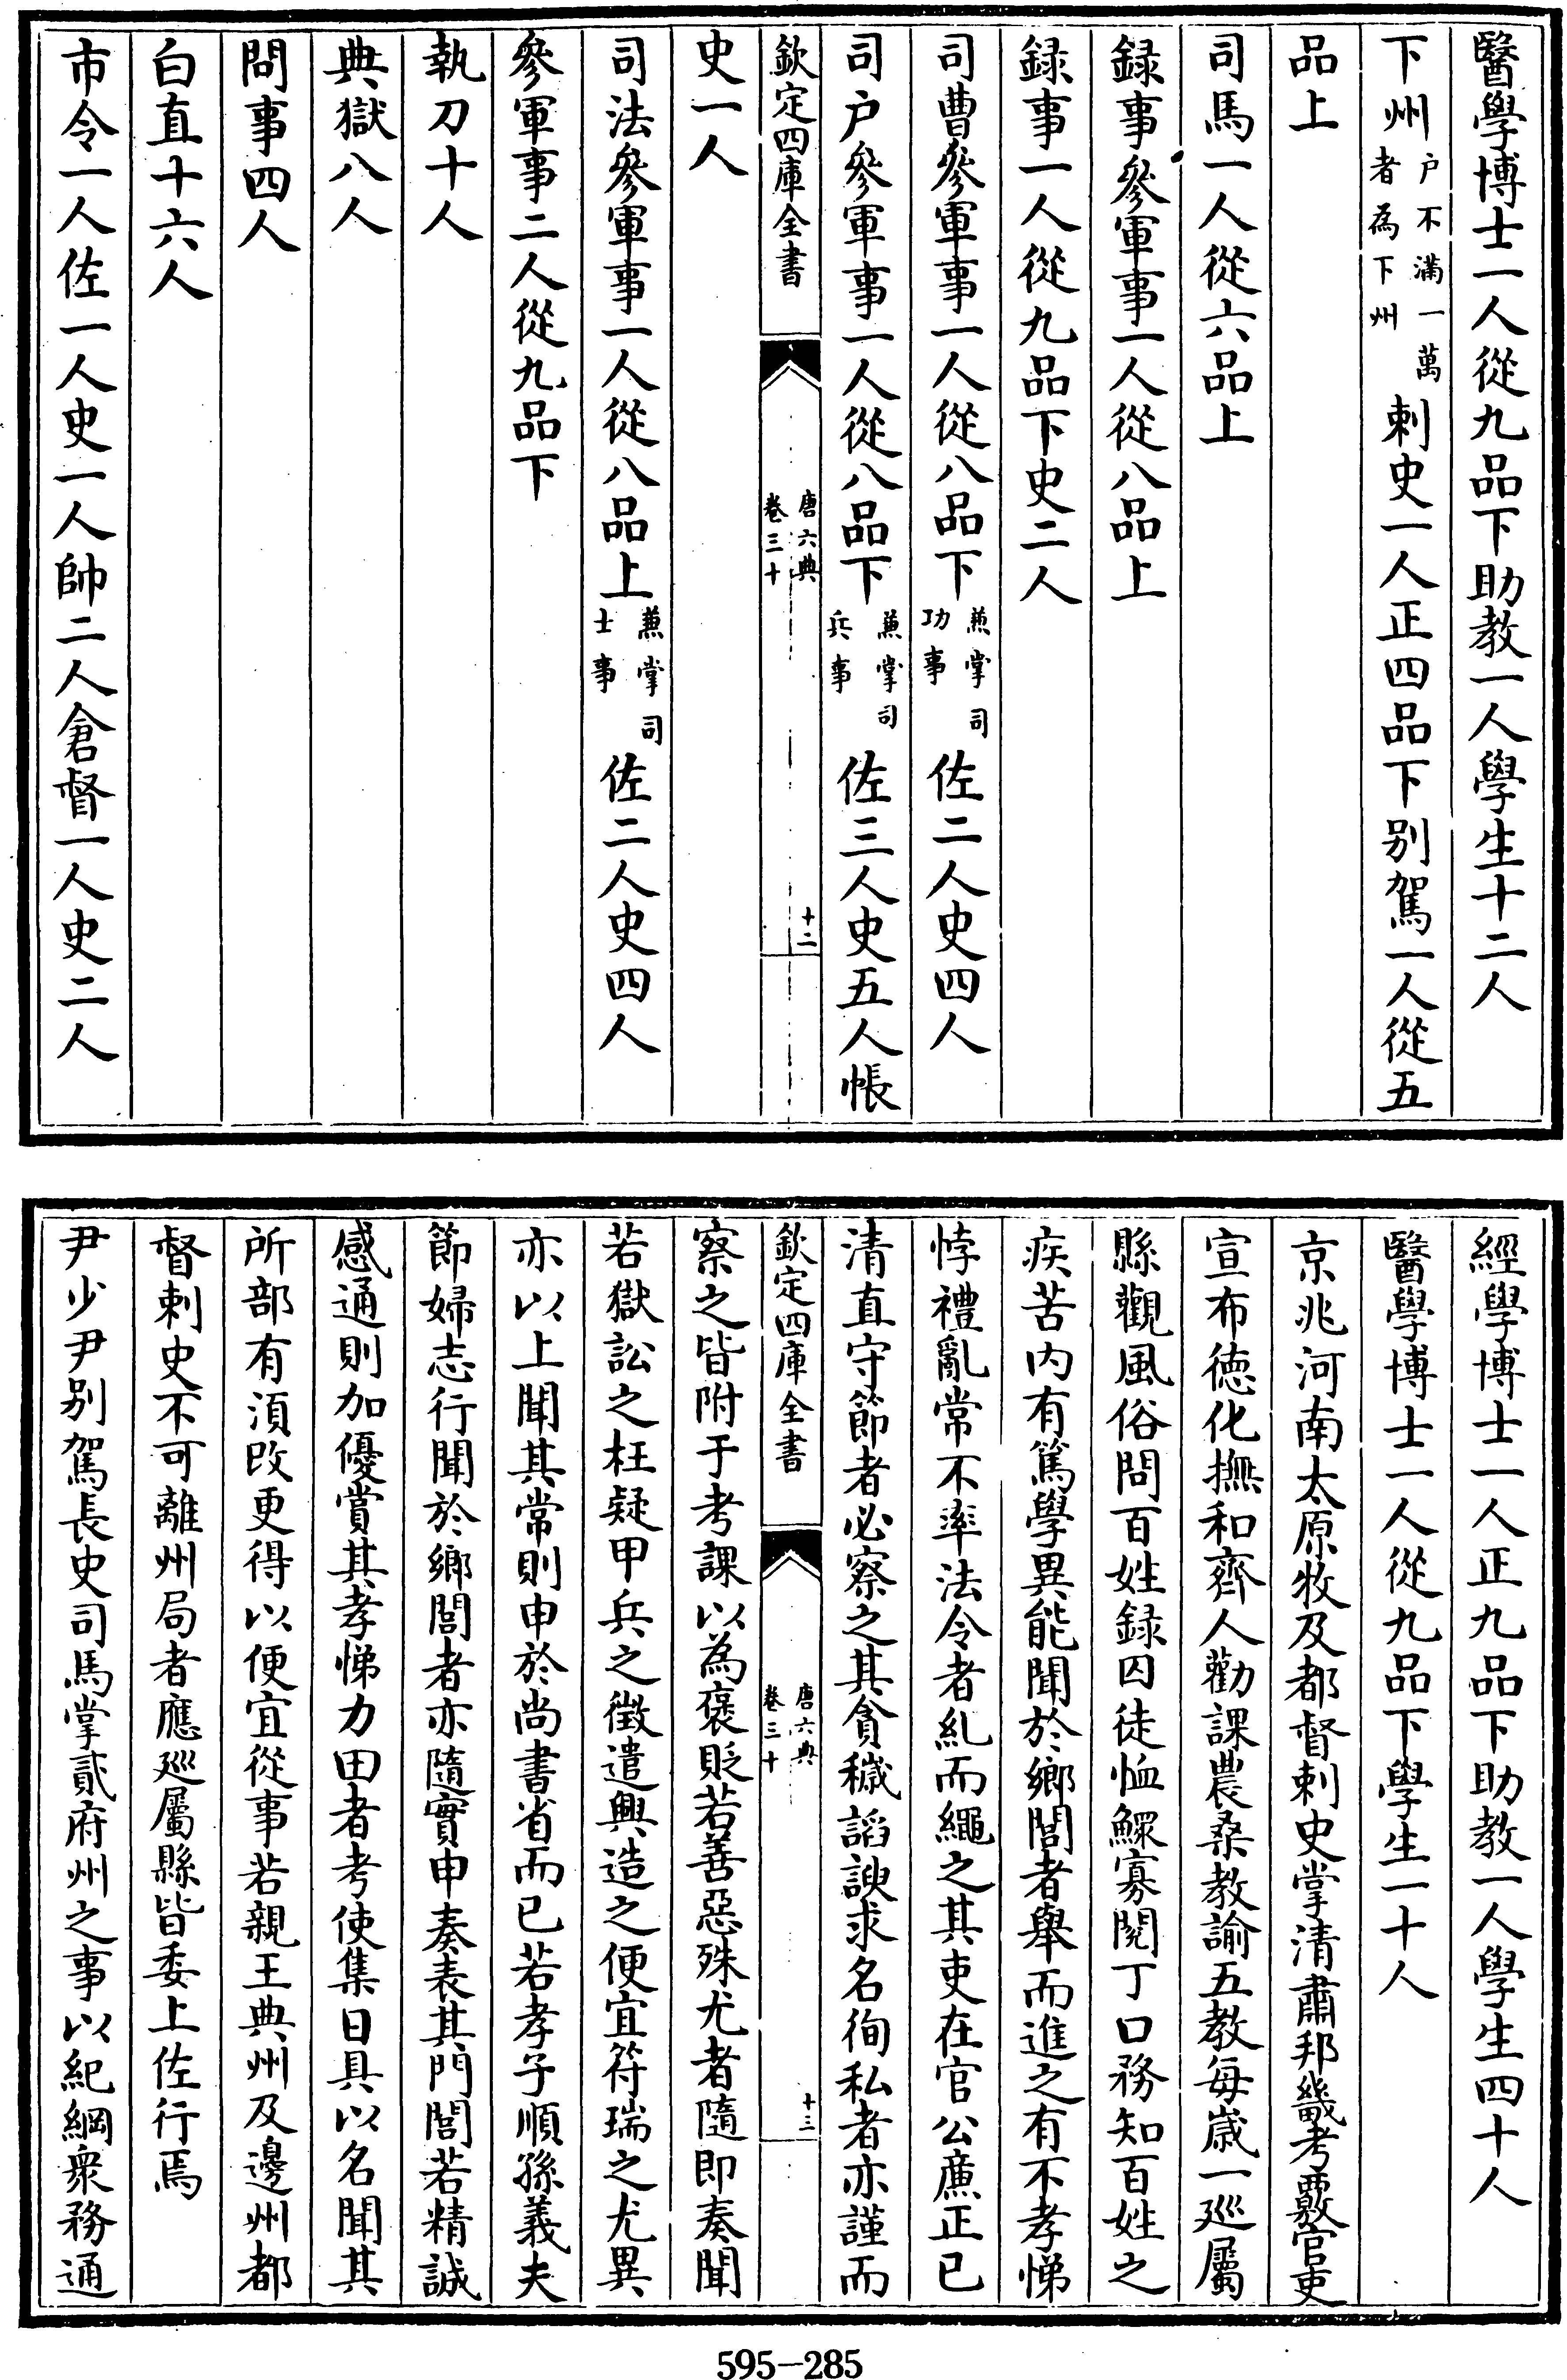 醫學博士一人從九品下助教一人學生十二人
下州户不滿一萬者為下州刺史一人正四品下别駕一人從五
品上
司馬一人從六品上
録事參軍事一人從八品上
録事一人從九品下史二人
司曹參軍事一人從八品下兼掌司功事佐二人史四人
司户參軍事一人從八品下兼掌司兵事佐三人史五人帳
欽定四庫全書
唐六典
卷三十
十二
史一人
司法參軍事一人從八品上兼掌司士事佐二人史四人
參軍事二人從九品下
執刀十人
典獄八人
問事四人
白直十六人
市令一人佐一人史一人帥二人倉督一人史二人
經學博士一人正九品下助教一人學生四十人
醫學博士一人從九品下學生一十人
京兆河南太原牧及都督刺史掌清肅邦畿考覈官吏
宣布徳化撫和齊人勸課農桑教諭五教每嵗一廵屬
縣觀風俗問百姓録囚徒恤鰥寡閱丁口務知百姓之
疾苦内有篤學異能聞於鄉閭者舉而進之有不孝悌
悖禮亂常不率法令者糺而繩之其吏在官公亷正已
清直守節者必察之其貪穢諂諛求名徇私者亦謹而
欽定四庫全書
唐六典
卷三十
十三
察之皆附于考課以為褒貶若善惡殊尤者隨即奏聞
若獄訟之枉疑甲兵之徴遣興造之便宜符瑞之尤異
亦以上聞其常則申於尚書省而已若孝子順孫義夫
節婦志行聞於鄉閭者亦隨實申奏表其門閭若精誠
感通則加優賞其孝悌力田者考使集日具以名聞其
所部有湏改更得以便宜從事若親王典州及邊州都
督刺史不可離州局者應廵屬縣皆委上佐行焉
尹少尹别駕長史司馬掌貳府州之事以紀綱衆務通
595-285